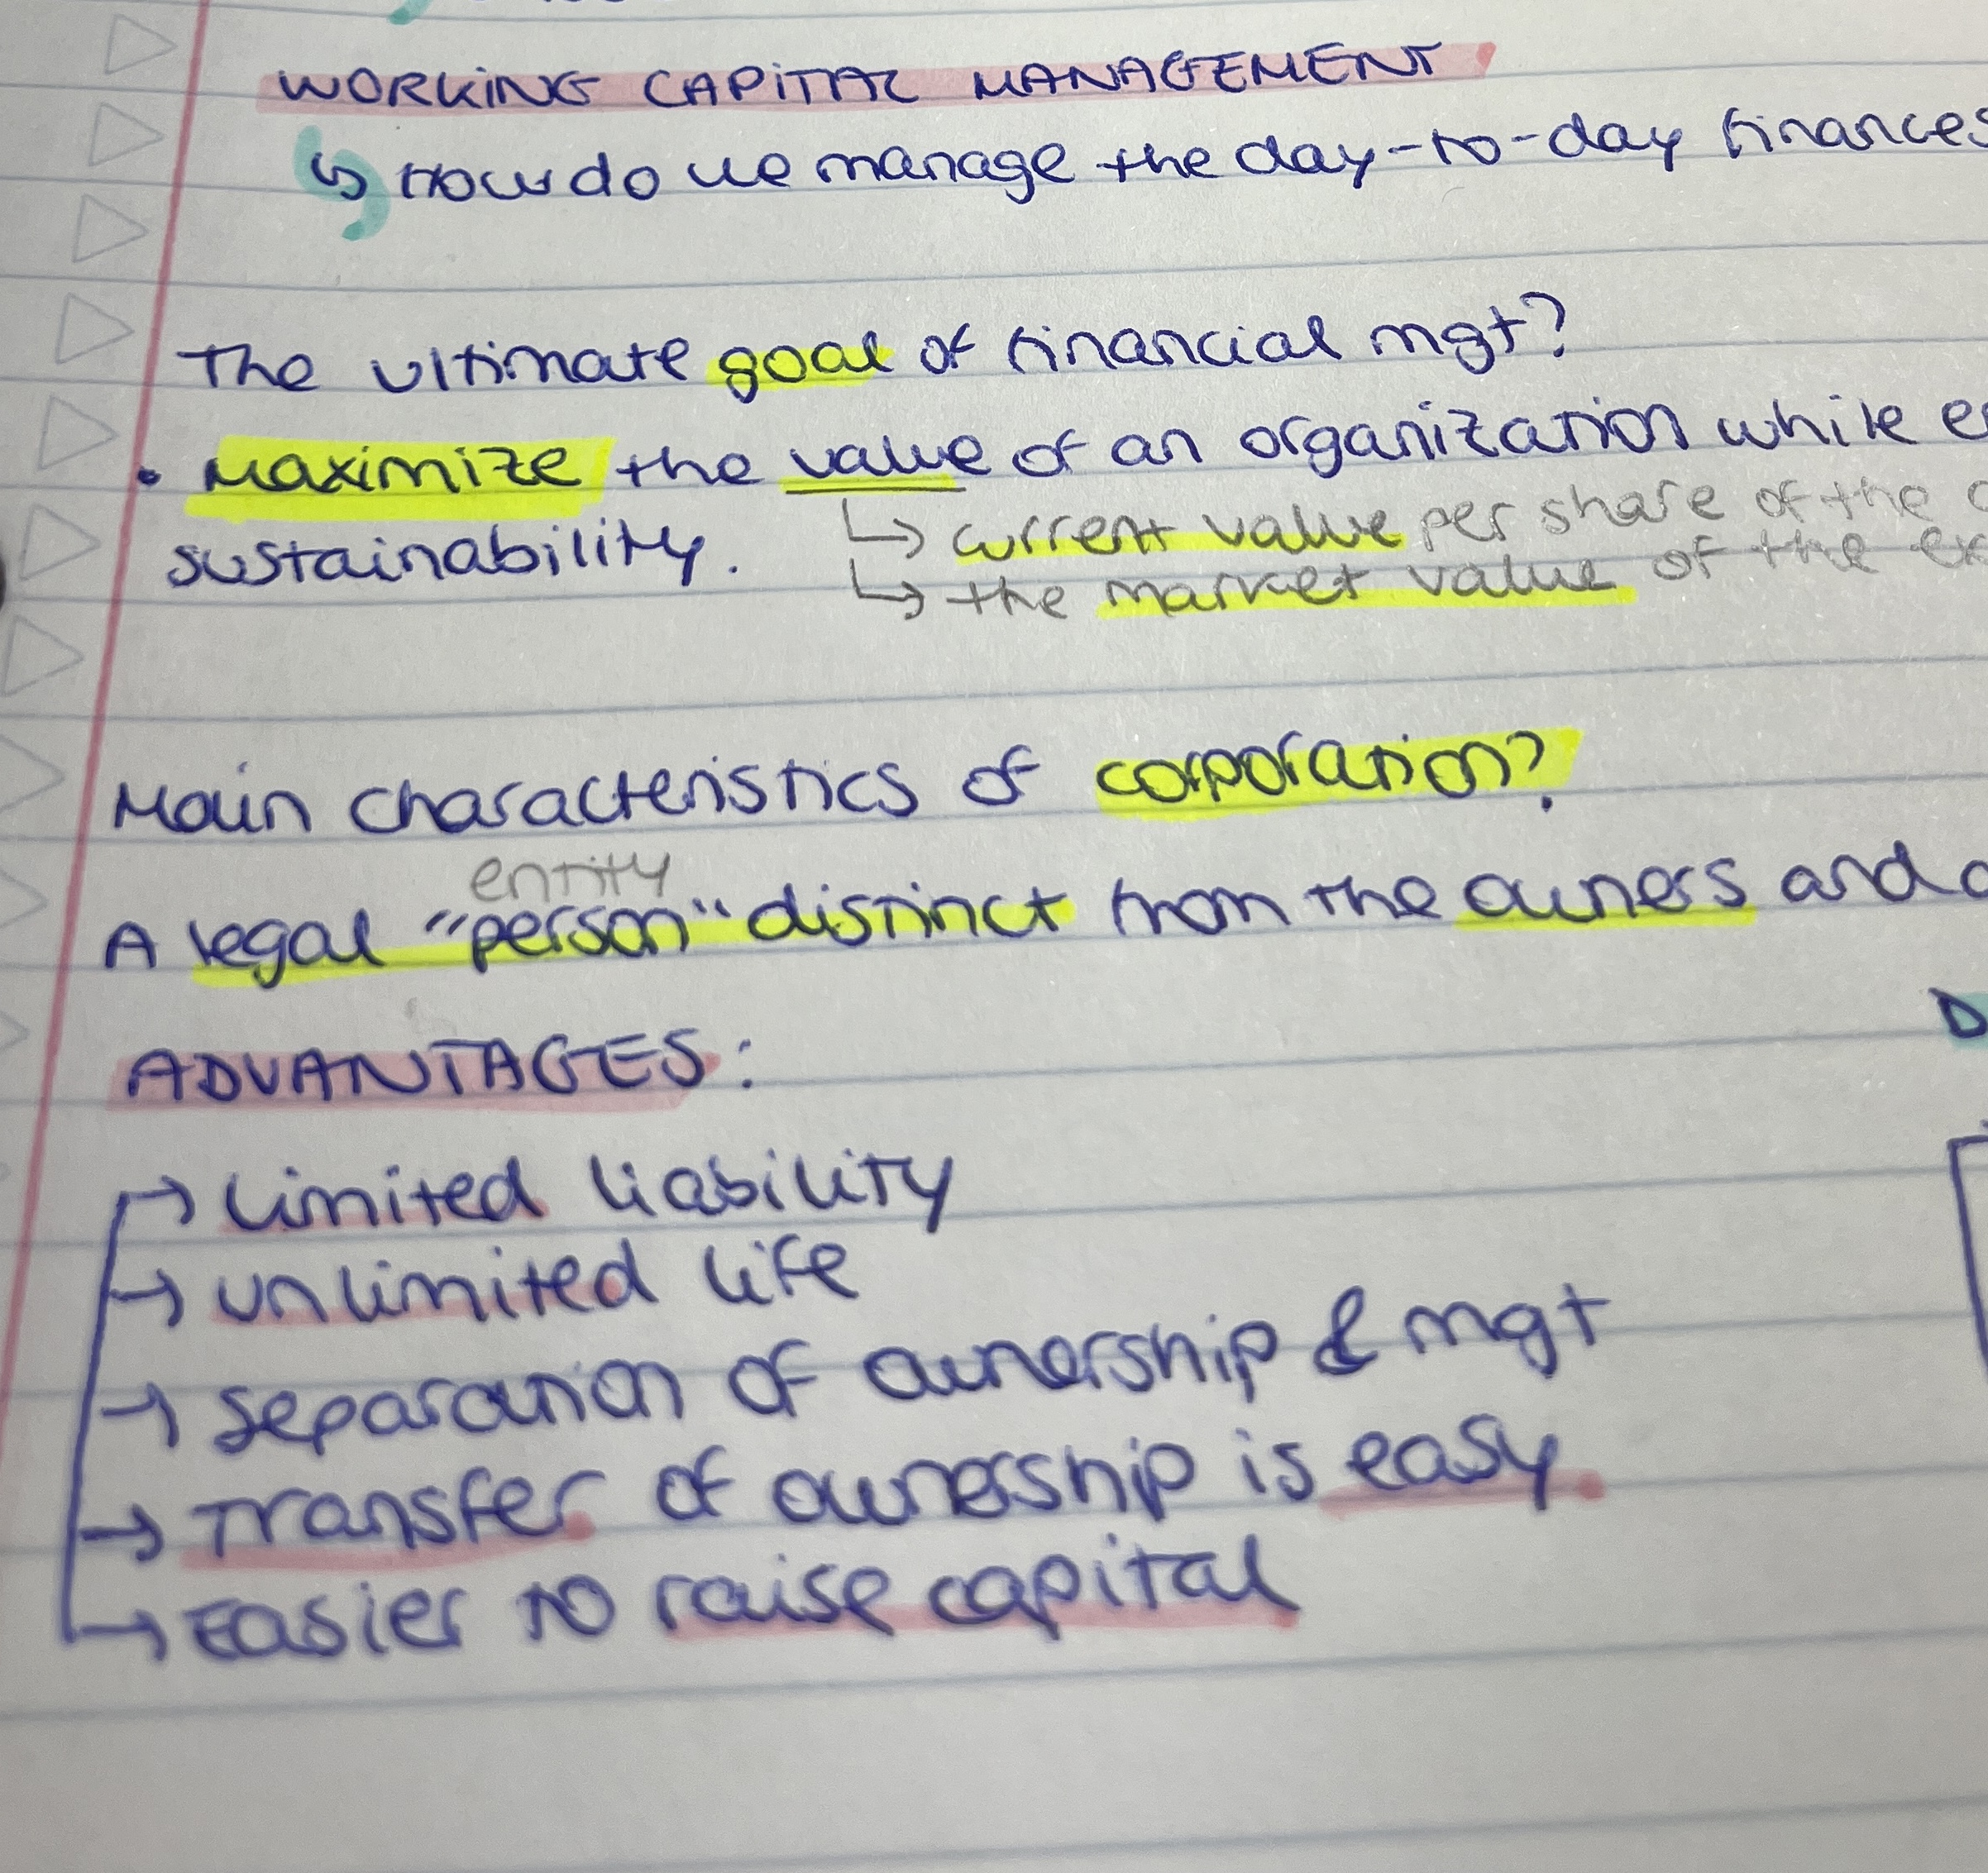 WORKING CAPITAL MANAGEMENT
↳ How do we manage the day-to-day finances
The ultimate goal of financial mgt?
• Maximize the value of an organization while
↳ current value per share of the
sustainability.
↳ the market value of the
Main characteristics of corporation?
entity
A legal "person" distinct from the owners and
ADVANTAGES:
→ Limited liability
→ unlimited life
→ separation of ownership & mgt
→ Transfer of ownership is easy
→ Easier to raise capital